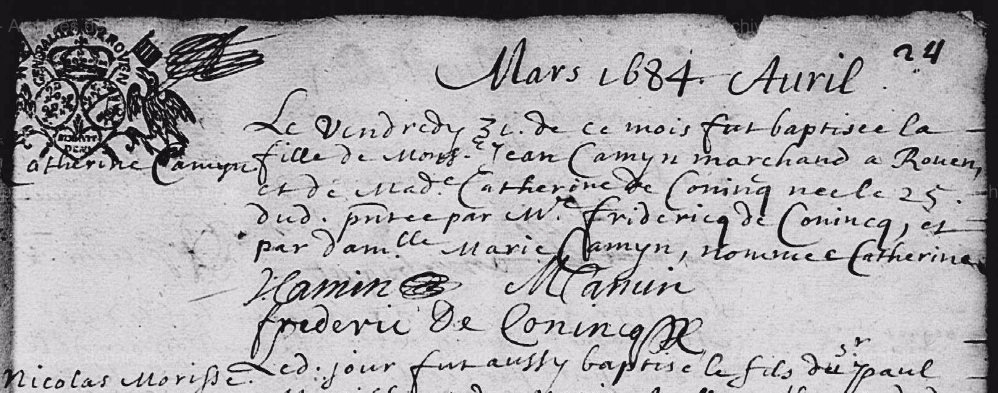 24
Mars 1684. Avril
Catherine Camyn
Le Vendredy 31. de ce mois fut baptisée la
fille de Monsr. Jean Camyn marchand a Rouen,
et de Made Catherine de Conincq nee le 25
dud. pntee par Mr. Fridericq de Conincq, et
par damlle Marie Camyn, nommee Catherine
JCamin M Camin
frederic De Conincq
Nicolas Morisse. Led. jour fut aussy baptisé le fils du sr paul